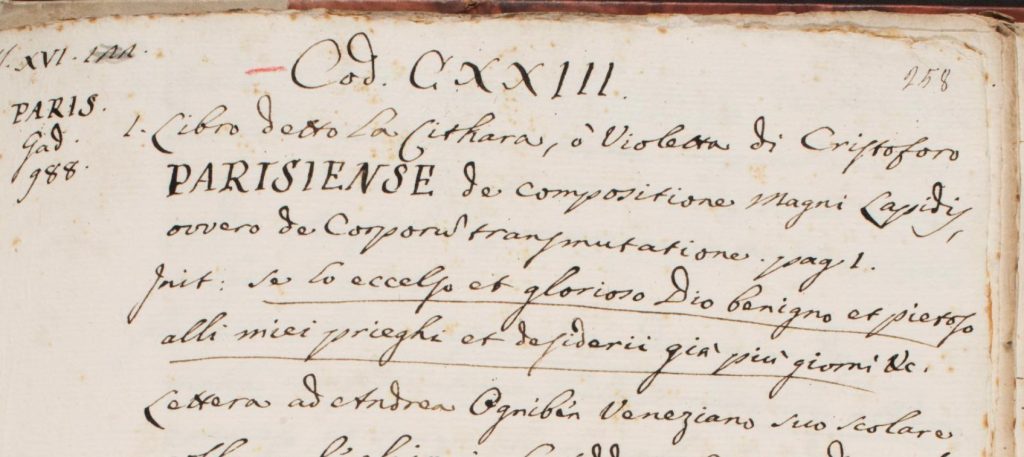 XVI. 122.
Cod. CXXIII.
258
PARIS.
Gad.
988.
1. Libro detto La Cithara, ò Violetta di Cristoforo
PARISIENSE de compositione Magni Lapidis,
ovvero de Corporũ transmutatione. pag 1.
Init: se lo eccelso et glorioso Dio benigno et pietoso
alli miei prieghi et desiderii già più giorni &c.
Lettera ad Andrea Ognibèn Veneziano suo scolare